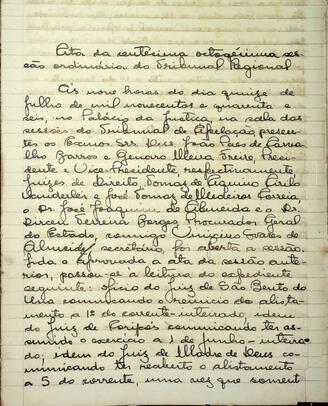 Ata da centésima octogésima ses-
são ordinária do Tribunal Regional
Ás nove horas do dia quinze de
julho de mil novecentos e quarenta e
seis, no Palácio da Justiça, na sala das
sessões do Tribunal de Apelação, presen-
tes os Exmos. Srs. Des. João Paes de Carva-
lho Barros e Genaro Freire, Presi-
dente e Vice-Presidente, respectivamente,
Juizes de Direito, Tomaz de Aquino Cirilo
Wanderlei e José Tomaz de Medeiros Correia,
o Dr. José Joaquim de Almeida e o Dr.
Dirceu Ferreira Borges, Procurador Geral
do Estado, comigo Vinicius Soares de
Almeida, secretário, foi aberta a sessão.
Lida e aprovada a ata da sessão ante-
rior, passou-se á leitura do expediente
seguinte: oficio do Juiz de São Bento do
Una comunicando o reinicio do alista-
mento a 1º do corrente - inteirado; idem
do Juiz de comunicando ter as-
sumido o exercicio a 1 de junho - inteira-
do; idem do Juiz de Madre de Deus co-
municando ter reaberto o alistamento
a 5 do corrente, uma vez que soment